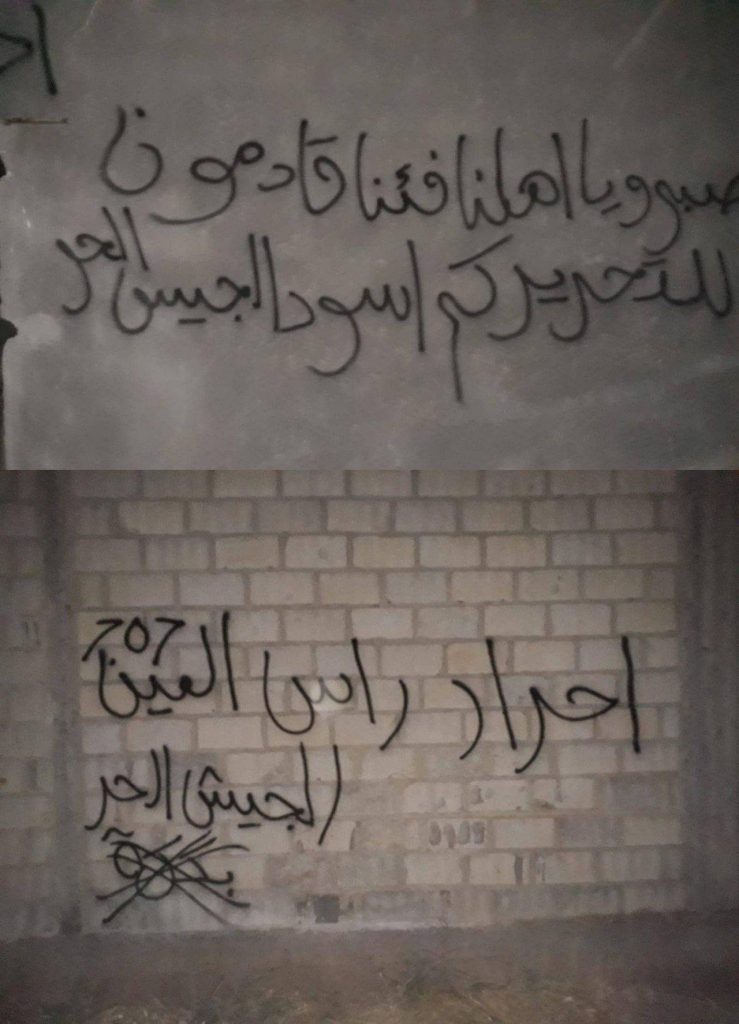 اح
صبرو يا اهلنا فئنا قادمون
للتحريركم اسود الجيش الحر
احرار راس العين 707
الجيش الحر